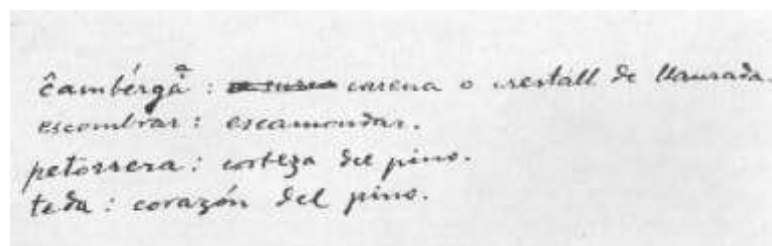 ĉambérgạ : carena o crestall de llaurada.
escombrar : escamondar.
petorrera : corteza del pino.
teda : corazón del pino.